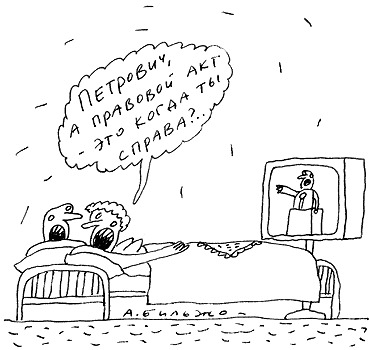 ПЕТРОВИЧ,
А ПРАВОВОЙ АКТ
- ЭТО КОГДА ТЫ
СПРАВА?..
А. БИЛЬЖО